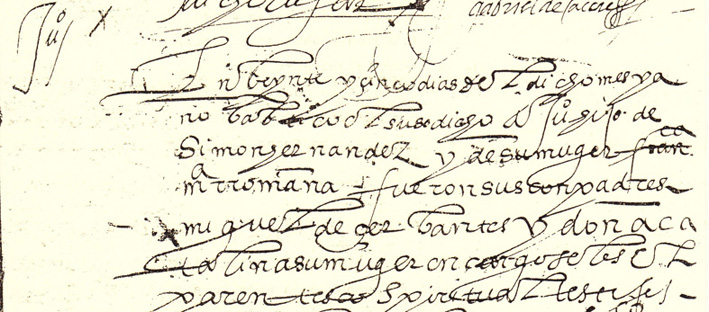 Juº
gabriel de caceres
En beynte y çinco dias del dicho mes y a
no batiço el susodicho a Juº hijo de
Simon hernandez y de su muger fran
ca
mª rromana fueron sus conpadres
miguel de çerbantes y dona ca
talina su muger encargoseles el
parentesco spiritual testigos